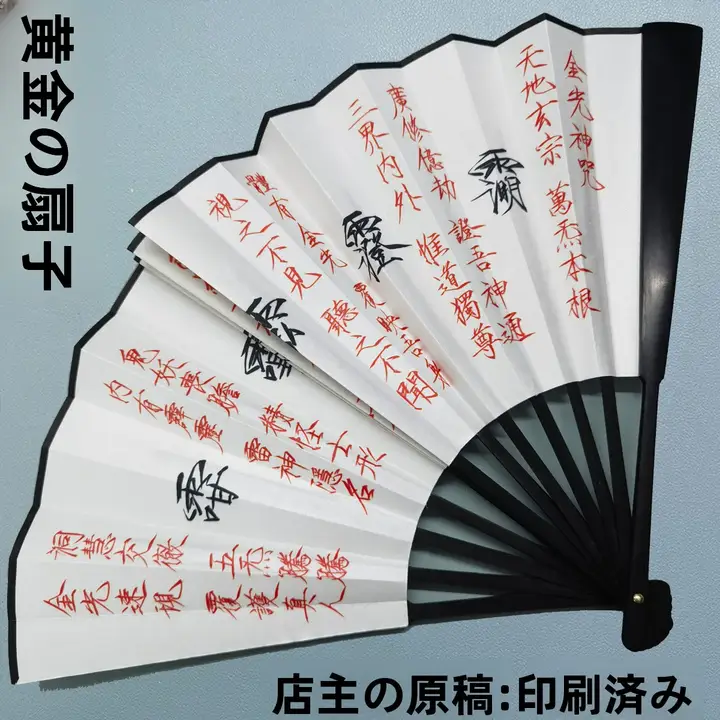 黄金の扇子
金光神咒
天地玄宗 萬炁本根
廣修億劫 證吾神通
三界內外 惟道獨尊
體有金光 覆映吾身
視之不見 聽之不聞
鬼妖喪膽 精怪亡形
內有霹靂 雷神隱名
洞慧交徹 五炁騰騰
金光速現 覆護真人
店主の原稿:印刷済み